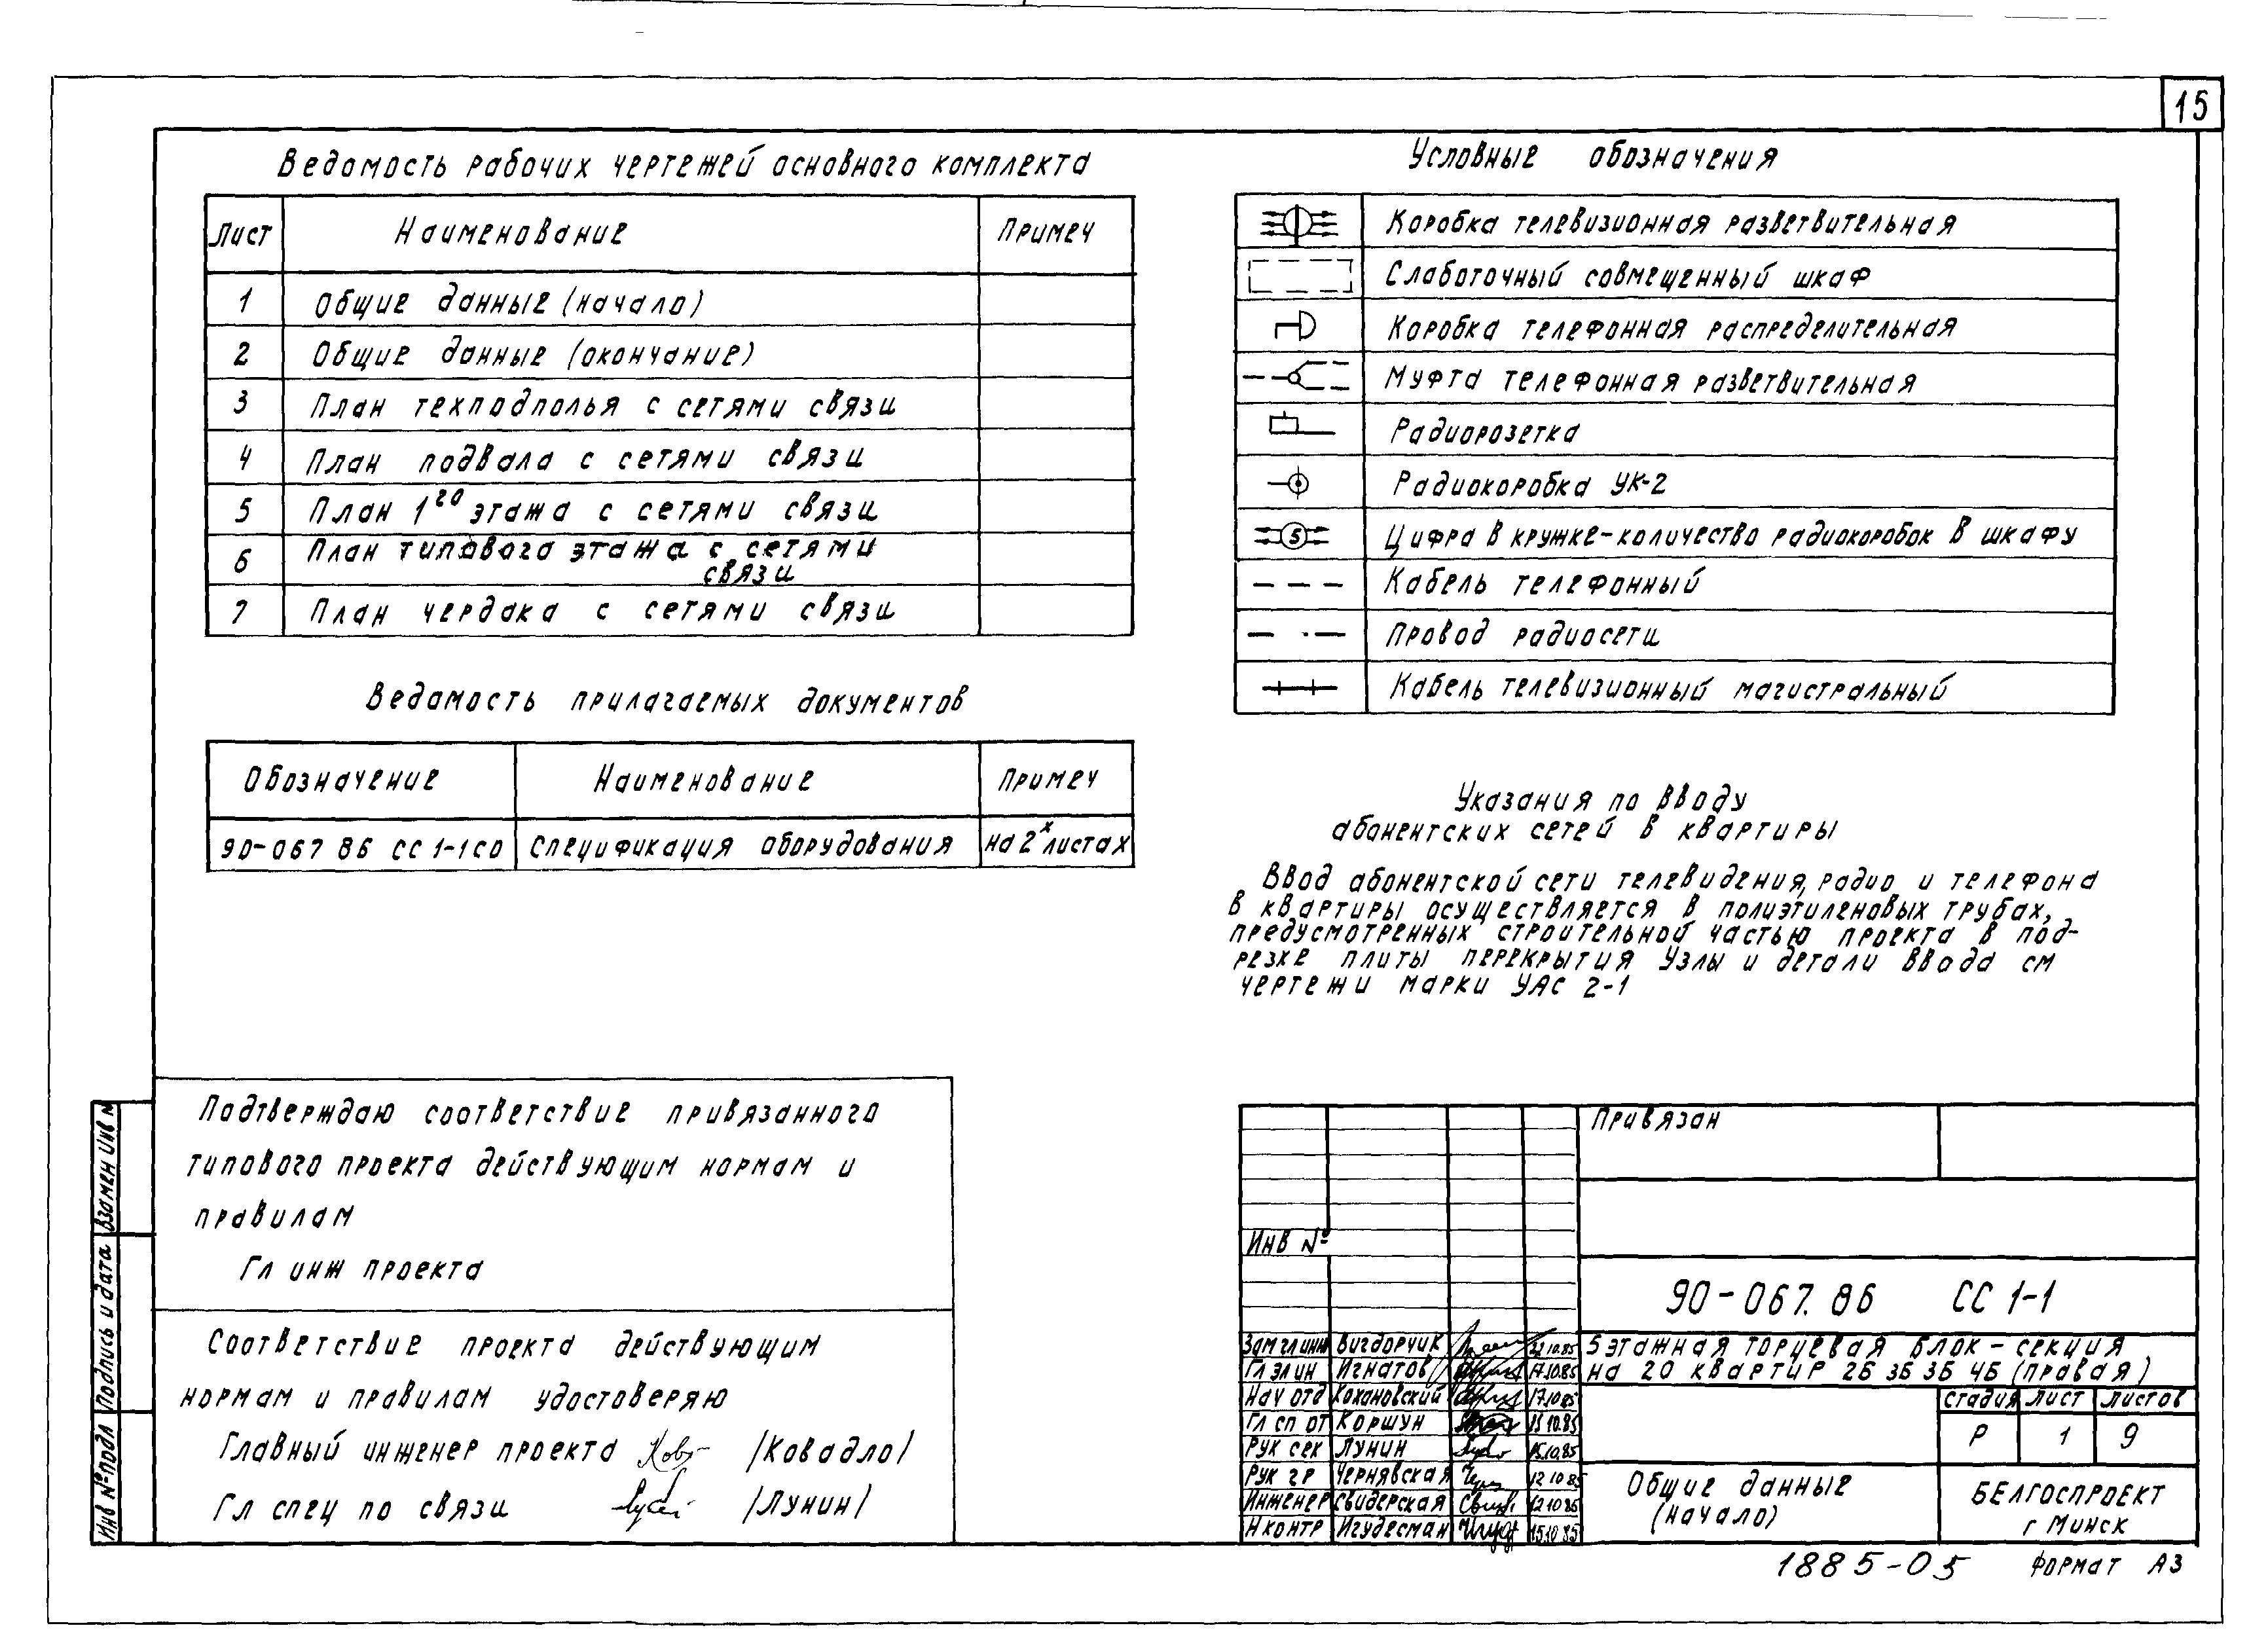 15
Ведомость рабочих чертежей основного комплекта
Лист Наименование Примеч
1 Общие данные (начало)
2 Общие данные (окончание)
3 План техподполья с сетями связи
4 План подвала с сетями связи
5 План 1го этажа с сетями связи
6 План типового этажа с сетями
связи
7 План чердака с сетями связи
Ведомость прилагаемых документов
Обозначение Наименование Примеч
90-067 86 СС 1-1 СО Спецификация оборудования на 2х листах
Условные обозначения
Коробка телевизионная разветвительная
Слаботочный совмещенный шкаф
Коробка телефонная распределительная
Муфта телефонная разветвительная
Радиорозетка
Радиокоробка УК-2
5 Цифра в кружке-количество радиокоробок в шкафу
Кабель телефонный
Провод радиосети
Кабель телевизионный магистральный
Указания по вводу
абонентских сетей в квартиры
Ввод абонентской сети телевидения, радио и телефона
в квартиры осуществляется в полиэтиленовых трубах,
предусмотренных строительной частью проекта в под-
резке плиты перекрытия Узлы и детали ввода см
чертежи марки УАС 2-1
Подтверждаю соответствие привязанного
типового проекта действующим нормам и
правилам
Гл инж проекта
Соответствие проекта действующим
нормам и правилам удостоверяю
Главный инженер проекта /Ковадло/
Гл спец по связи /Лунин/
Взамен Инв №
Подпись и дата
Инв № подл
Привязан
Инв №
90-067.86 СС 1-1
Зам гл инж Вигдорчик 22.10.85
Гл эл ин Игнатов 17.10.85
Нач отд Кохановский 17.10.85
Гл сп от Коршун 15 10.85
Рук сек Лунин 15.10.85
Рук гр Чернявская 12 10 85
Инженер Свидерская 12 10 85
Н контр Игудесман 15.10 85
5 этажная торцевая блок-секция
на 20 квартир 2Б 3Б 3Б 4Б (правая)
Стадия Лист Листов
Р 1 9
Общие данные
(начало)
БЕЛГОСПРОЕКТ
г Минск
1885-05 Формат А3